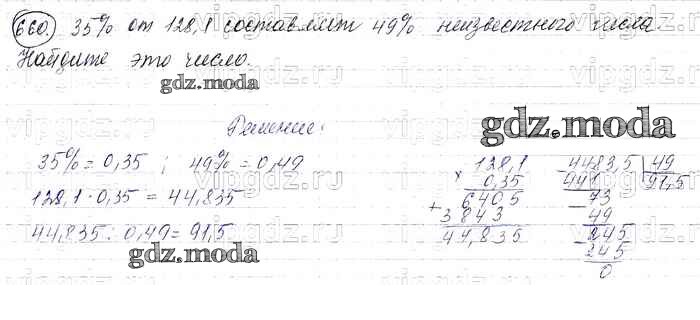 660. 35% от 128,1 составляет 49% неизвестного числа
Найдите это число.
gdz.moda
Решение:
gdz.moda
35% = 0,35 ; 49% = 0,49
128,1 · 0,35 = 44,835
44,835 : 0,49 = 91,5
gdz.moda
128,1
× 0,35
6405
+ 3843
44,835
4483,5 | 49
441 91,5
73
49
245
245
0